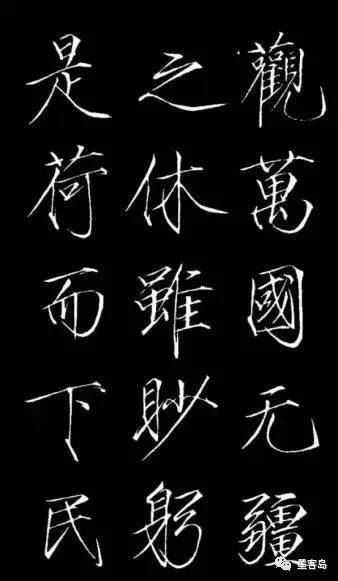 觀萬國无疆
之休雖眇躬
是荷而下民
墨客岛